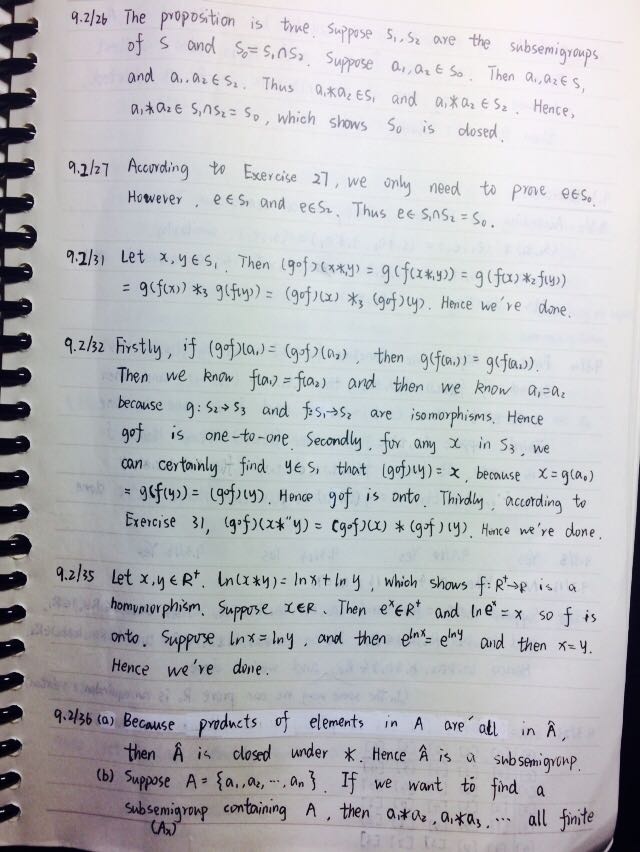 9.2/26 The proposition is true. Suppose S₁, S₂ are the subsemigroups
of S and S₀ = S₁∩S₂. Suppose a₁, a₂ ∈ S₀. Then a₁, a₂ ∈ S₁
and a₁, a₂ ∈ S₂. Thus a₁*a₂ ∈ S₁ and a₁*a₂ ∈ S₂. Hence,
a₁*a₂ ∈ S₁∩S₂ = S₀, which shows S₀ is closed.
9.2/27 According to Exercise 27, we only need to prove e∈S₀.
However, e∈S₁ and e∈S₂. Thus e∈S₁∩S₂ = S₀.
9.2/31 Let x, y ∈ S₁. Then (g∘f)(x*y) = g(f(x*y)) = g(f(x) *₂ f(y))
= g(f(x)) *₃ g(f(y)) = (g∘f)(x) *₃ (g∘f)(y). Hence we're done.
9.2/32 Firstly, if (g∘f)(a₁) = (g∘f)(a₂), then g(f(a₁)) = g(f(a₂)).
Then we know f(a₁) = f(a₂) and then we know a₁=a₂
because g: S₂→S₃ and f: S₁→S₂ are isomorphisms. Hence
g∘f is one-to-one. Secondly, for any x in S₃, we
can certainly find y∈S₁ that (g∘f)(y) = x, because x = g(a₀)
= g(f(y)) = (g∘f)(y). Hence g∘f is onto. Thirdly, according to
Exercise 31, (g∘f)(x*"y) = (g∘f)(x) * (g∘f)(y). Hence we're done.
9.2/35 Let x, y ∈ R⁺. ln(x*y) = ln x + ln y, which shows f: R⁺→R is a
homomorphism. Suppose x∈R. Then eˣ∈R⁺ and ln eˣ = x so f is
onto. Suppose ln x = ln y, and then e^(ln x) = e^(ln y) and then x = y.
Hence we're done.
9.2/36 (a) Because products of elements in A are all in Â,
then  is closed under *. Hence  is a subsemigroup.
(b) Suppose A = {a₁, a₂, ⋯, aₙ}. If we want to find a
subsemigroup containing A, then a₁*a₂, a₁*a₃, ⋯ all finite
(Ax)